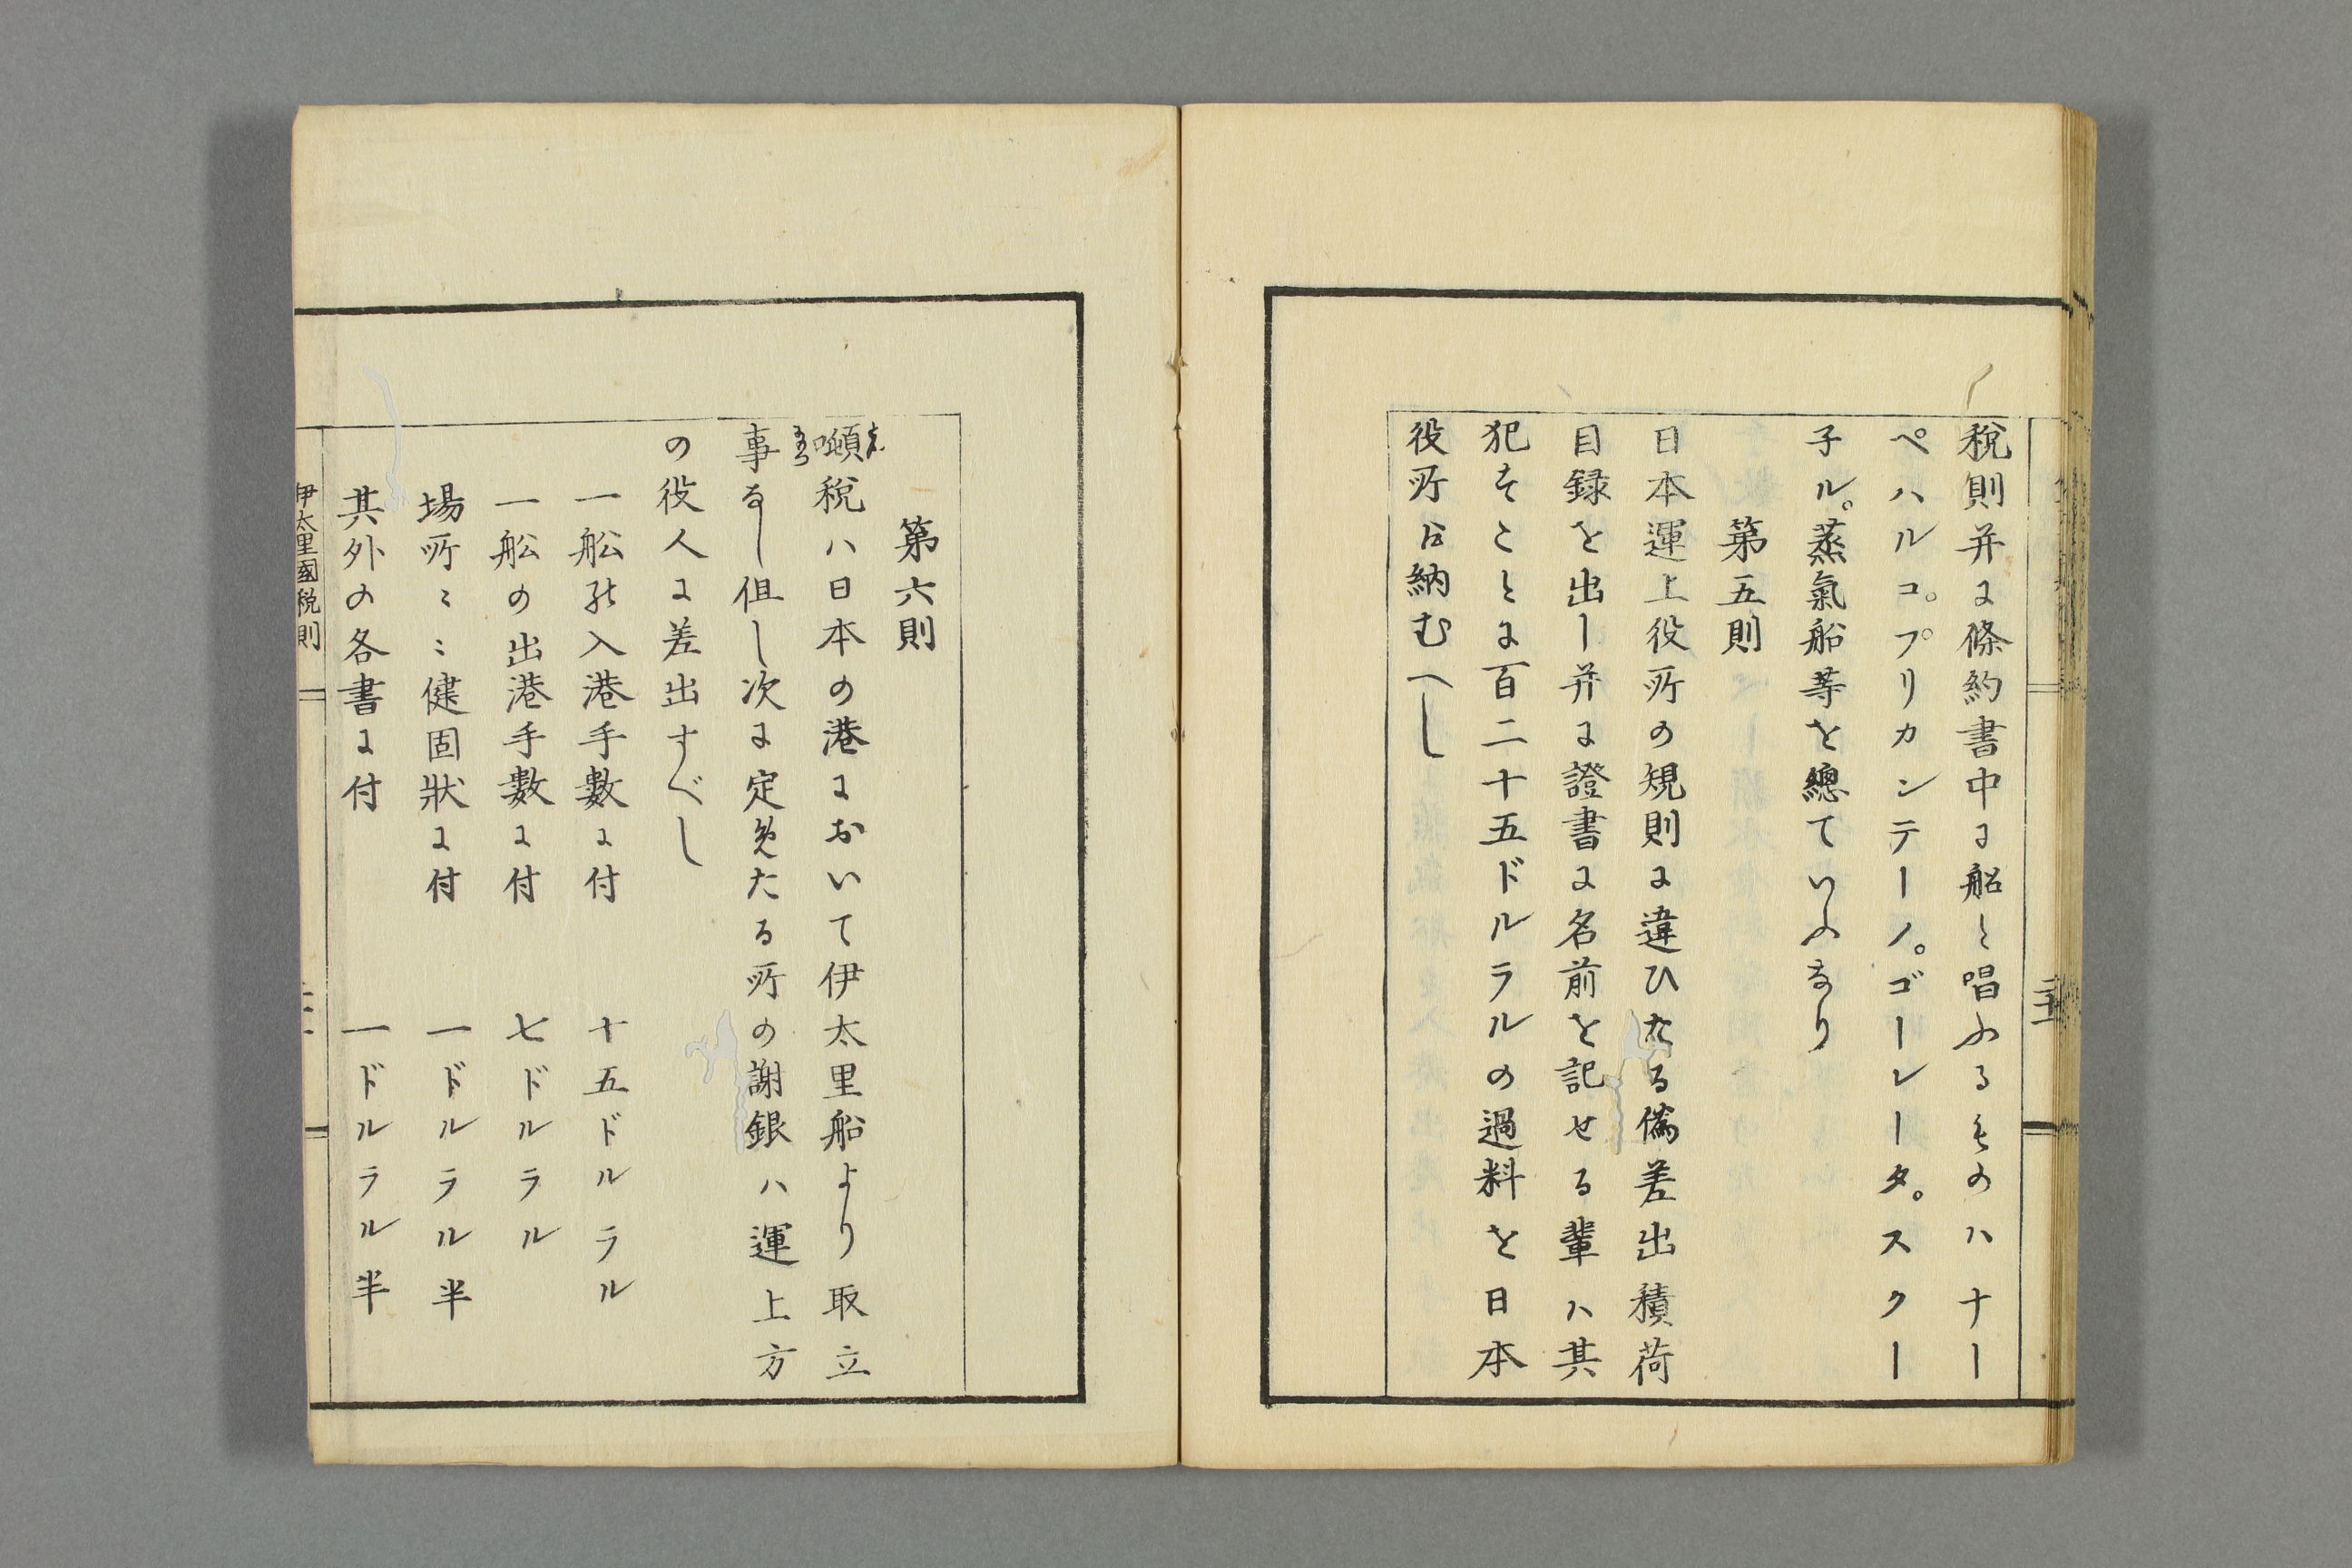 税則并に條約書中に船と唱ふるものハナー
ペハルコ。プリカンテーノ。ゴーレータ。スクー
子ル。蒸氣船等を總ていふなり
第五則
日本運上役所の規則に違ひたる僞差出積荷
目録を出し并に證書に名前を記せる輩ハ其
犯すことに百二十五ドルラルの過料を日本
役所に納むへし
第六則
噸税ハ日本の港において伊太里船より取立
事なし但し次に定めたる所の謝銀ハ運上方
の役人に差出すべし
一舩の入港手數に付 十五ドルラル
一舩の出港手數に付 七ドルラル
場所〻〻健固狀に付 一ドルラル半
其外の各書に付 一ドルラル半
伊太里國税則